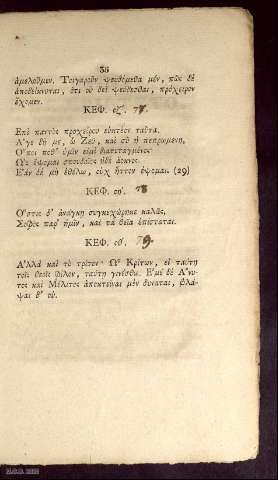 36
ἀμελοῦμεν. Τοιγαροῦν ψευδόμεθα μὲν, πῶς δὲ
ἀποδείκνυται, ὅτι οὐ δεῖ ψεύδεσθαι, πρόχειρον
ἔχομεν.
ΚΕΦ. οζ'. 77.
Ἐπὶ παντὸς προχείρου εὐκτέον ταῦτα.
Ἄγε δή με, ὦ Ζεῦ, καὶ σὺ ἡ πεπρωμένη,
Ὅποι ποθ' ὑμῖν εἰμὶ διατεταγμένος·
Ὡς ἕψομαι σπουδαῖος ἠδὲ ἄοκνος.
Ἐὰν δὲ μὴ ἐθέλω, οὐχ ἧττον ἕψομαι. (29)
ΚΕΦ. οη'. 78
Ὅστις δ' ἀνάγκῃ συγκεχώρηκε καλῶς,
Σοφὸς παρ' ἡμῖν, καὶ τὰ θεῖα ἐπίσταται.
ΚΕΦ. οθ'. 79.
Ἀλλὰ καὶ τὸ τρίτον· Ὦ Κρίτων, εἰ ταύτῃ
τοῖς θεοῖς φίλον, ταύτῃ γενέσθω. Ἐμὲ δὲ Ἄνυ-
τος καὶ Μέλιτος ἀποκτεῖναι μὲν δύναται, βλά-
ψαι δ' οὔ.